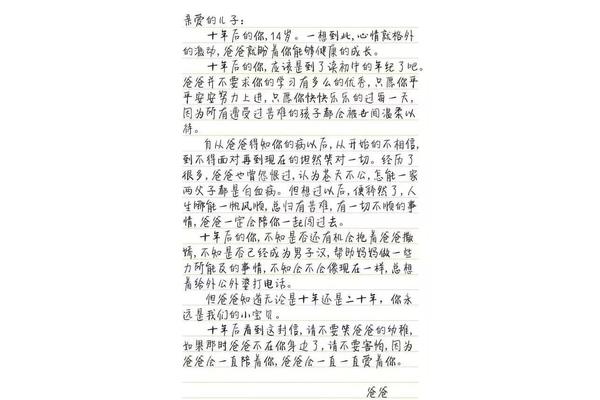 亲爱的儿子：
十年后的你，14岁。一想到此，心情就格外
的激动，爸爸就盼着你能够健康的成长。
十年后的你，应该是到了读初中的年纪了吧。
爸爸并不要求你的学习有多么的优秀，只愿你平
平安安努力上进，只愿你快快乐乐的过每一天，
因为所有遭受过苦难的孩子都会被世间温柔以
待。
自从爸爸得知你的病以后，从开始的不相信，
到不得面对再到现在的坦然笑对一切。经历了
很多，爸爸也曾怨恨过，认为苍天不公，怎能一家
两父子都是白血病。但想过以后，便释然了，人
生哪能一帆风顺，总归有苦难，有一切不顺的事
情，爸爸一定会陪你一起闯过去。
十年后的你，不知是否还有机会抱着爸爸撒
娇，不知是否已经成为男子汉，帮助妈妈做一些
力所能及的事情，不知会不会像现在一样，总想
着给外公外婆打电话。
但爸爸知道无论是十年还是二十年，你永
远是我们的小宝贝。
十年后看到这封信，请不要笑爸爸的幼稚，
如果那时爸爸不在你身边了，请不要害怕，因为
爸爸会一直陪着你，爸爸会一直一直爱着你。
爸爸